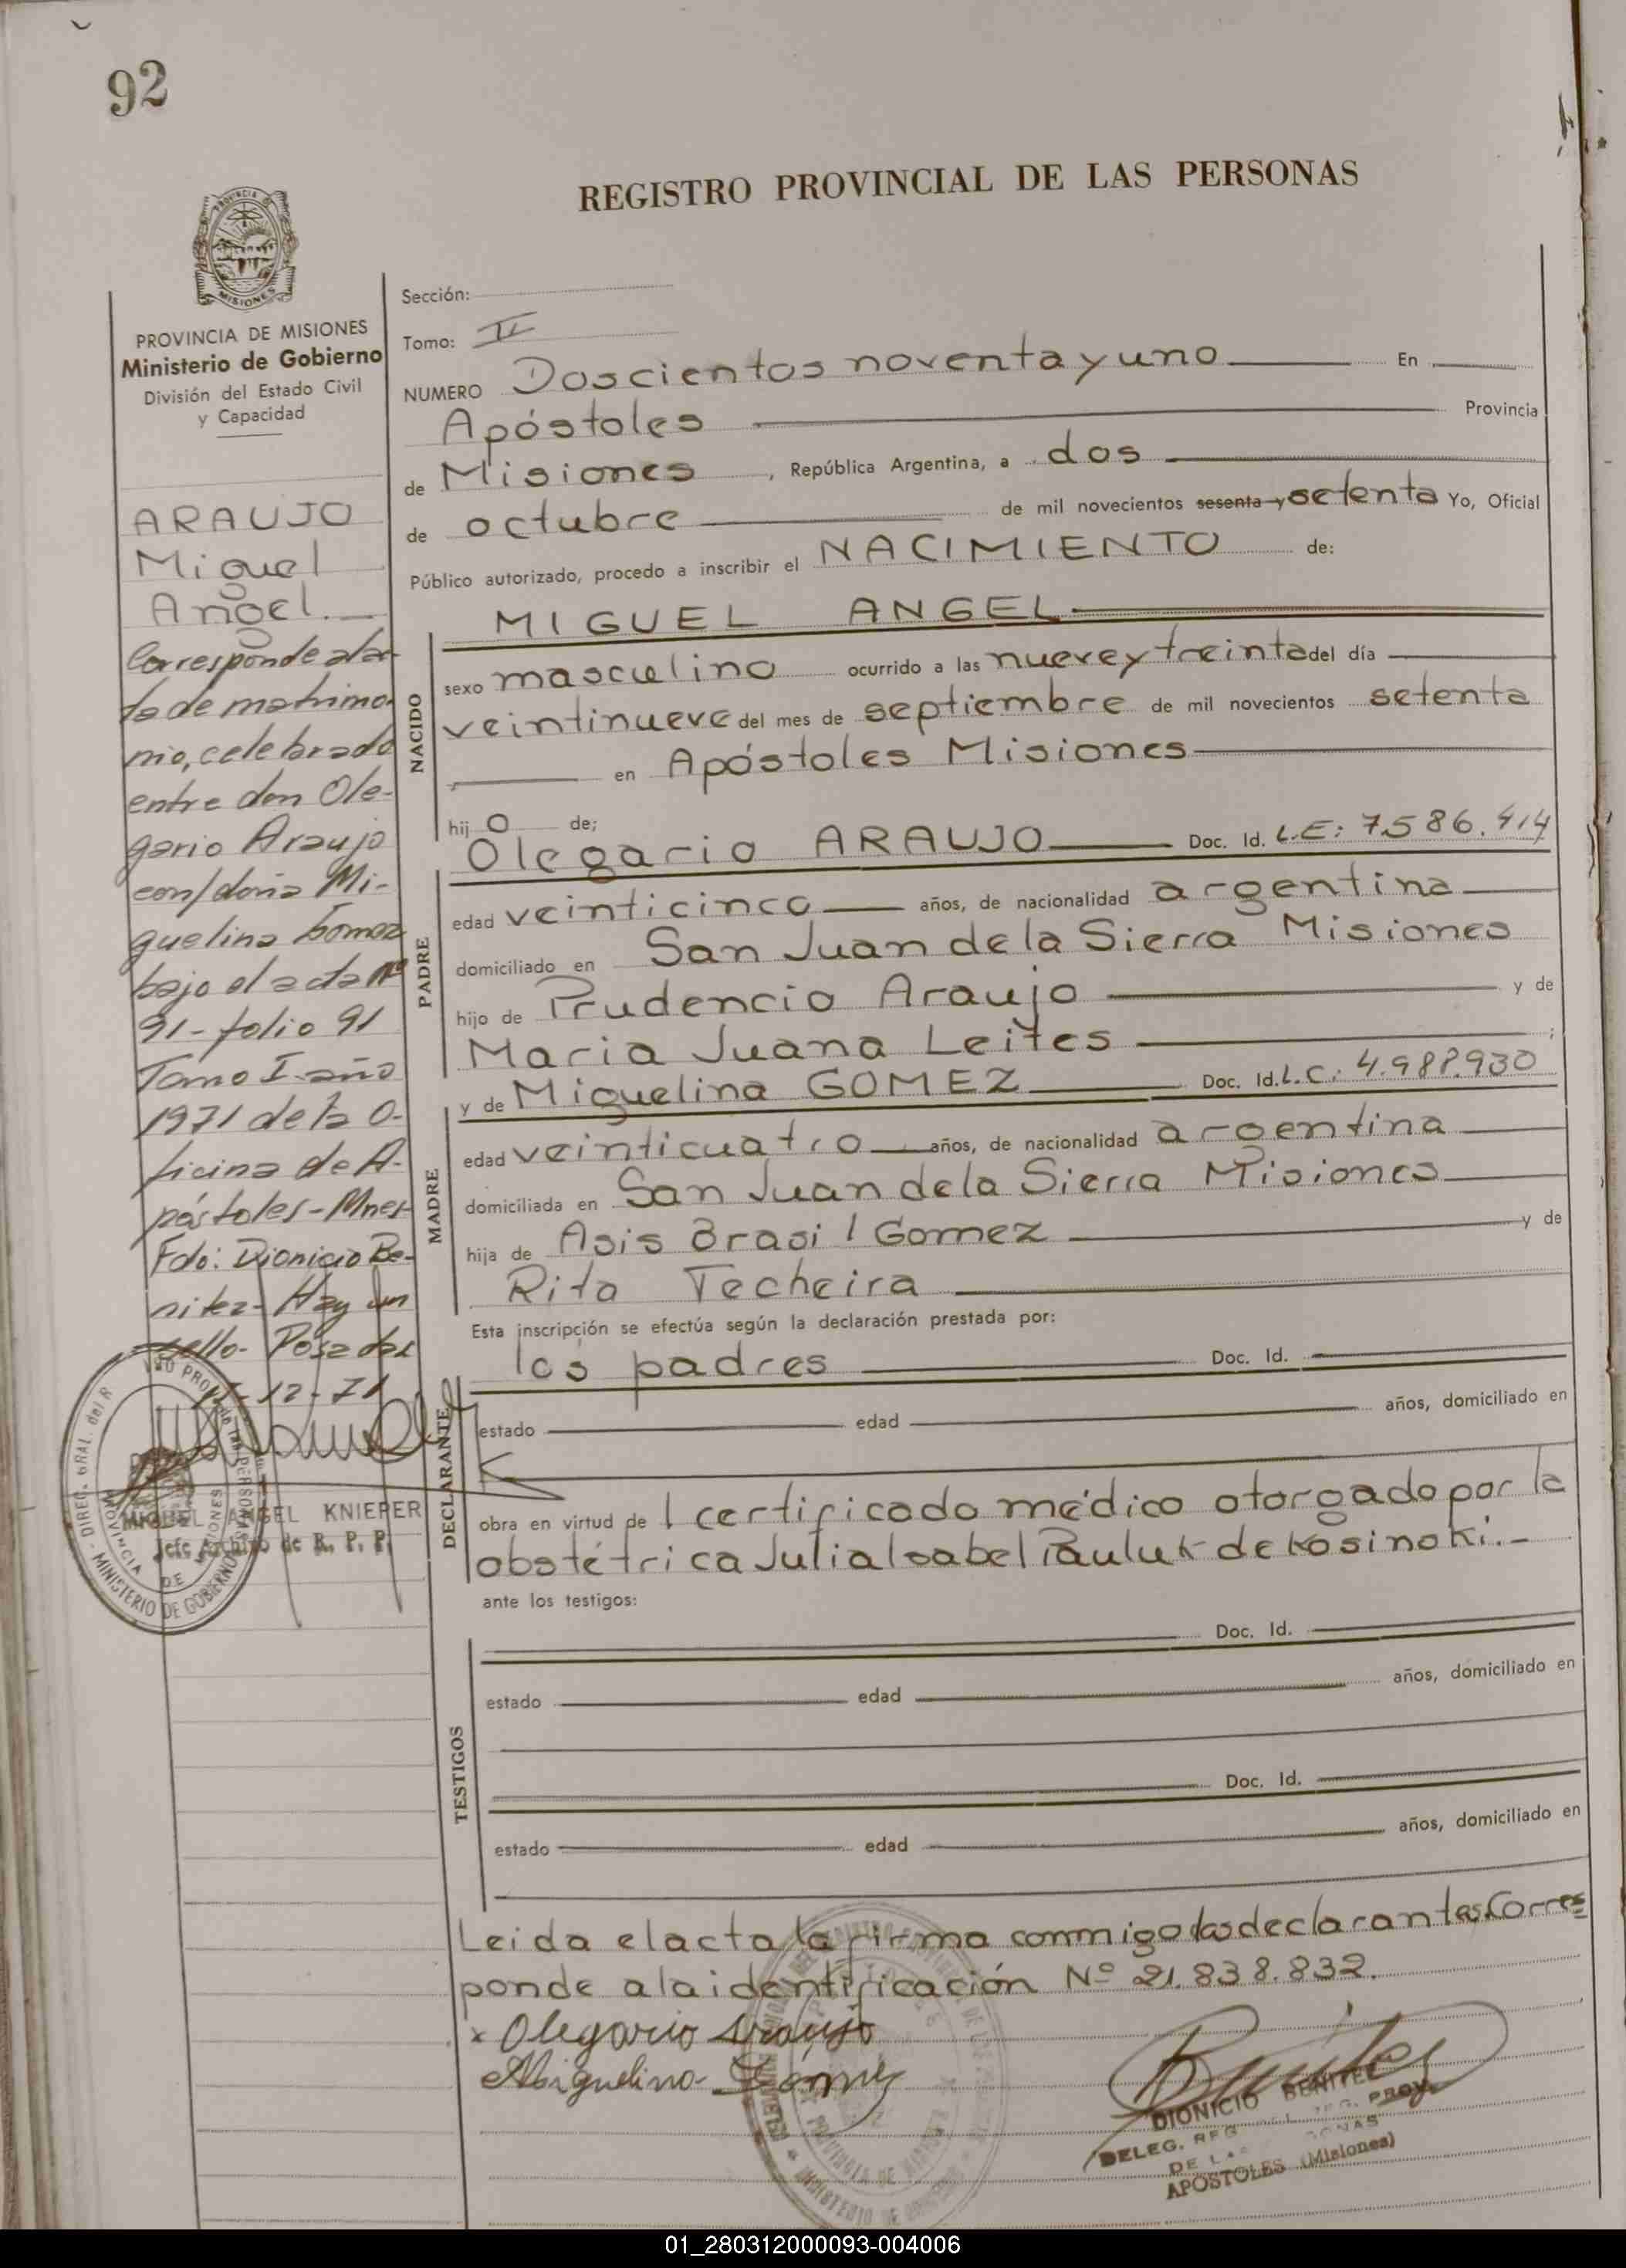 92
REGISTRO PROVINCIAL DE LAS PERSONAS
PROVINCIA
MISIONES
PROVINCIA DE MISIONES
Ministerio de Gobierno
División del Estado Civil
y Capacidad
ARAUJO
Miguel
Angel.
Corresponde al ac
ta de matrimo
nio, celebrado
entre don Ole-
gario Araujo
con/doña Mi-
guelina Gomez
bajo el acta nº
91- folio 91
Tomo I- año
1971 de la O-
ficina de A-
póstoles - Mnes
Fdo: Dionicio Be-
nitez- Hay un
sello- Posadas
12-71
MIGUEL ANGEL KNIEPER
Jefe Archivo de R. P. P.
DIREC. GRAL. del R
MINISTERIO DE GOBIERNO
PROVINCIA DE MISIONES
Sección:
Tomo: II
NUMERO Doscientos noventa y uno En
Apóstoles Provincia
de Misiones, República Argentina, a dos
de octubre de mil novecientos sesenta y setenta Yo, Oficial
Público autorizado, procedo a inscribir el NACIMIENTO de:
NACIDO
MIGUEL ANGEL
sexo masculino ocurrido a las nueve y treinta del día
veintinueve del mes de septiembre de mil novecientos setenta
en Apóstoles Misiones
hijo de;
PADRE
Olegario ARAUJO Doc. Id. L.E: 7.586.414
edad veinticinco años, de nacionalidad argentina
domiciliado en San Juan de la Sierra Misiones
hijo de Prudencio Araujo y de
Maria Juana Leites ;
MADRE
y de Miguelina GOMEZ Doc. Id. L.C: 4.988.930
edad veinticuatro años, de nacionalidad argentina
domiciliada en San Juan de la Sierra Misiones
hija de Asis Brasil Gomez y de
Rita Techeira
Esta inscripción se efectúa según la declaración prestada por:
DECLARANTE
los padres Doc. Id.
estado edad años, domiciliado en
obra en virtud del certificado médico otorgado por la
obstétrica Julia Isabel Pauluk de Kosinski.-
ante los testigos:
TESTIGOS
Doc. Id.
estado edad años, domiciliado en
Doc. Id.
estado edad años, domiciliado en
Leida el acta la firma conmigo los declarantes. Corres
ponde a la identificación Nº 21.838.832.
x Olegario Araujo
Miguelina Gómez
Benitez
DIONICIO BENITEZ
DELEG. REG. PROV.
DE LAS PERSONAS
APOSTOLES (Misiones)
01_280312000093-004006